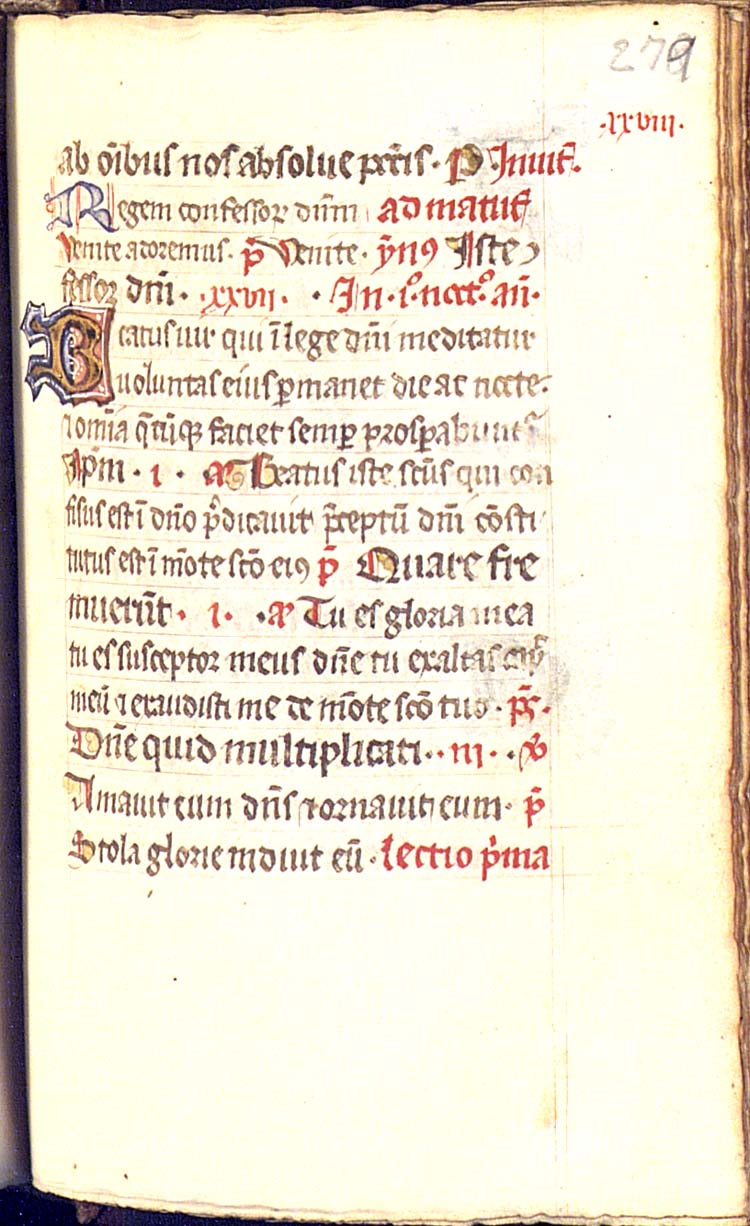 279
·xxviii·
ab oībus nos absolue pctīs · P Inuit̄.
Regem confessoꝝ dn̄m ad matut̄
venite adoremus · p̄ Venite · ẏn9 Iste
fessoꝝ dn̄i · ·xxvii· · In · i°· noct°· an̄·
Beatus uir qui ī lege dn̄i meditatur
uoluntas eius ꝑmanet die ac nocte ·
⁊ omīa q̄cūqꝫ faciet semꝑ prospabunt
· i · a Beatus iste sctūs qui con
fisus est ī dn̄o p̄dicauit p̄ceptū dn̄i cōsti
tutus est ī mōte scō ei9 p̄ Quare fre
muerūt · i · · a Tu es gloria mea
tu es susceptor meus dn̄e tu exaltas cap
meū ⁊ exaudisti me de mōte scō tuo · pꝰs ·
Dn̄e quid multiplicati · · iii · · v
Amauit eum dn̄s ⁊ ornauit eum · p̄
Stola glorie induit eū · lectio p̄ma